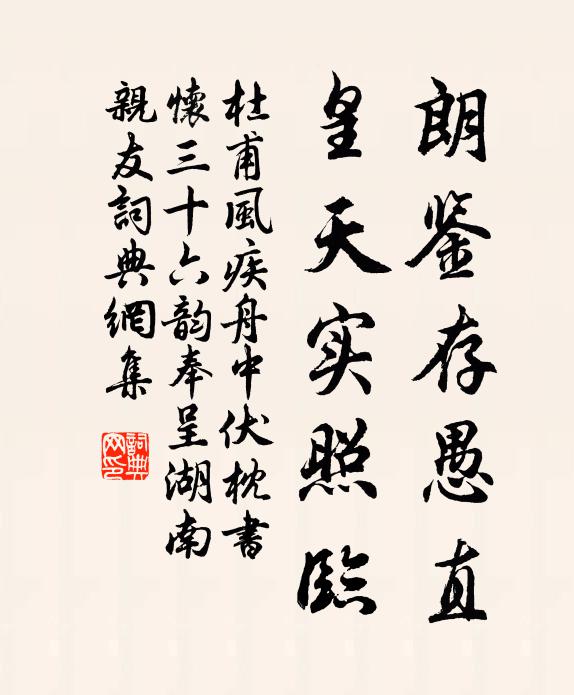 朗鉴存愚直
皇天实照临
杜甫風疾舟中伏枕書
懷三十六韵奉呈湖南
親友詞典網集
詞典
网印